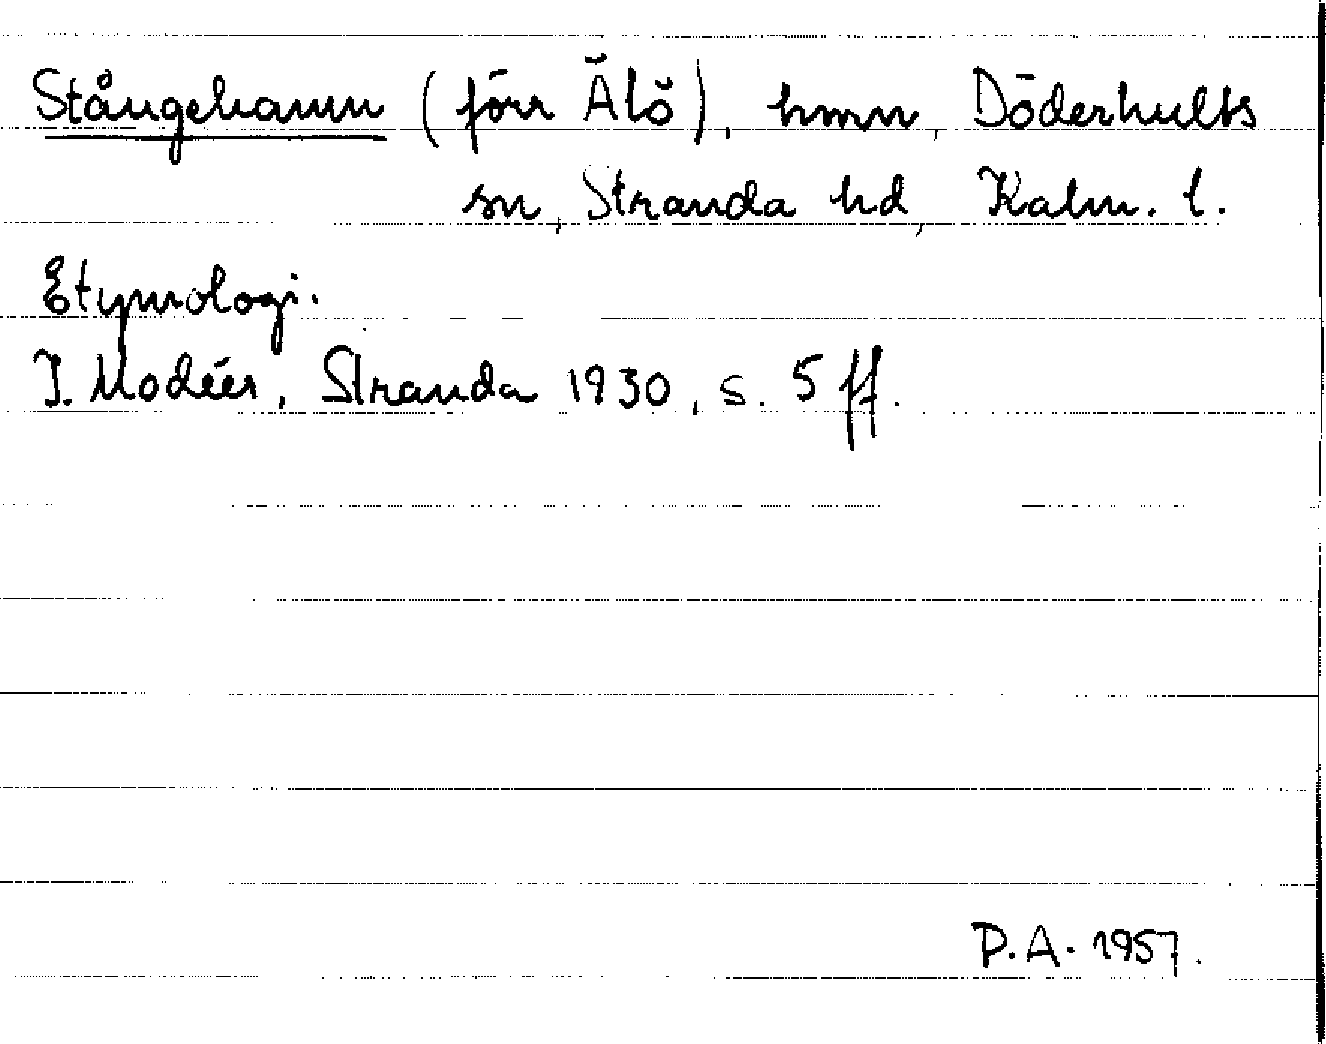 Stångehamn (förr Älö), hmn, Döderhults
sn, Stranda hd, Kalm. l.
Etymologi.
I. Modéer, Stranda 1930, s. 5 ff.
P.A. 1957.